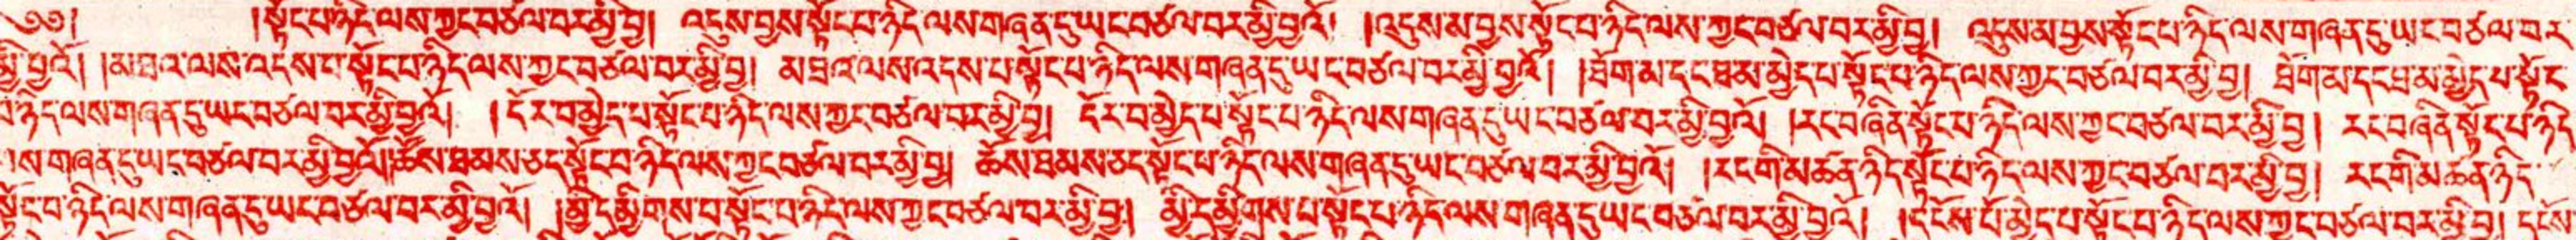 ༄༅། །སྟོང་པ་ཉིད་ལས་ཀྱང་བཙལ་བར་མྱི་བྱ། འདུས་བྱས་སྟོང་པ་ཉིད་ལས་གཞན་དུ་ཡང་བཙལ་བར་མྱི་བྱའོ། །འདུས་མ་བྱས་སྟོང་པ་ཉིད་ལས་ཀྱང་བཙལ་བར་མྱི་བྱ། འདུས་མ་བྱས་སྟོང་པ་ཉིད་ལས་གཞན་དུ་ཡང་བཙལ་བར
མྱི་བྱའོ། །མཐའ་ལས་འདས་པ་སྟོང་པ་ཉིད་ལས་ཀྱང་བཙལ་བར་མྱི་བྱ། མཐའ་ལས་འདས་པ་སྟོང་པ་ཉིད་ལས་གཞན་དུ་ཡང་བཙལ་བར་མྱི་བྱའོ། །ཐོག་མ་དང་ཐམ་མྱེད་པ་སྟོང་པ་ཉིད་ལས་ཀྱང་བཙལ་བར་མྱི་བྱ། ཐོག་མ་དང་ཐ་མ་མྱེད་པ་སྟོང
པ་ཉིད་ལས་གཞན་དུ་ཡང་བཙལ་བར་མྱི་བྱའོ། །དོར་བ་མྱེད་པ་སྟོང་པ་ཉིད་ལས་ཀྱང་བཙལ་བར་མྱི་བྱ། དོར་བ་མྱེད་པ་སྟོང་པ་ཉིད་ལས་གཞན་དུ་ཡང་བཙལ་བར་མྱི་བྱའོ། །རང་བཞིན་སྟོང་པ་ཉིད་ལས་ཀྱང་བཙལ་བར་མྱི་བྱ། རང་བཞིན་སྟོང་པ་ཉིད
ལས་གཞན་དུ་ཡང་བཙལ་བར་མྱི་བྱའོ། །ཆོས་ཐམས་ཅད་སྟོང་པ་ཉིད་ལས་ཀྱང་བཙལ་བར་མྱི་བྱ། ཆོས་ཐམས་ཅད་སྟོང་པ་ཉིད་ལས་གཞན་དུ་ཡང་བཙལ་བར་མྱི་བྱའོ། །རང་གི་མཚན་ཉིད་སྟོང་པ་ཉིད་ལས་ཀྱང་བཙལ་བར་མྱི་བྱ། རང་གི་མཚན་ཉིད
སྟོང་པ་ཉིད་ལས་གཞན་དུ་ཡང་བཙལ་བར་མྱི་བྱའོ། །མྱི་དམྱིགས་པ་སྟོང་པ་ཉིད་ལས་ཀྱང་བཙལ་བར་མྱི་བྱ། མྱི་དམྱིགས་པ་སྟོང་པ་ཉིད་ལས་གཞན་དུ་ཡང་བཙལ་བར་མྱི་བྱའོ། །དངོས་པོ་མྱེད་པ་སྟོང་པ་ཉིད་ལས་ཀྱང་བཙལ་བར་མྱི་བྱ། དངོས